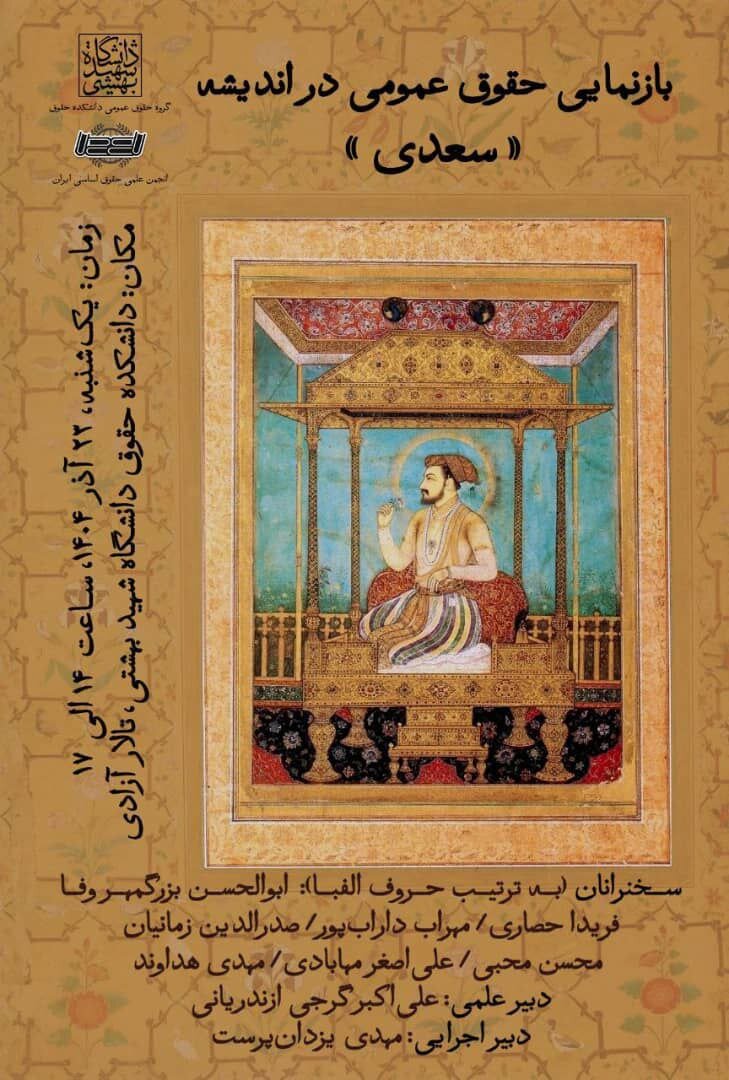 دانشگاه
شهید
بهشتی
گروه حقوق عمومی دانشکده حقوق
انجمن علمی حقوق اساسی ایران
بازنمایی حقوق عمومی در اندیشه
« سعدی »
زمان: یک‌شنبه، ۲۳ آذر ۱۴۰۴، ساعت ۱۴ الی ۱۷
مکان: دانشکده حقوق دانشگاه شهید بهشتی، تالار آزادی
سخنرانان (به ترتیب حروف الفبا): ابوالحسن بزرگمهر وفا
فریدا حصاری / مهراب داراب‌پور / صدرالدین زمانیان
محسن محبی / علی اصغر مهابادی / مهدی هداوند
دبیر علمی: علی اکبر گرجی ازندریانی
دبیر اجرایی: مهدی یزدان‌پرست